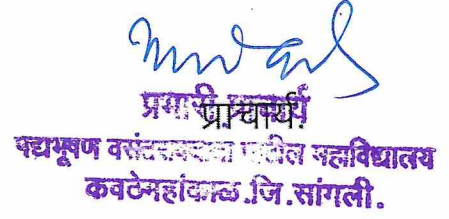 प्रभारी प्राचार्य
प्राचार्य.
पद्मभूषण पाटील महाविद्यालय
कवठेमहांकाळ.जि.सांगली.